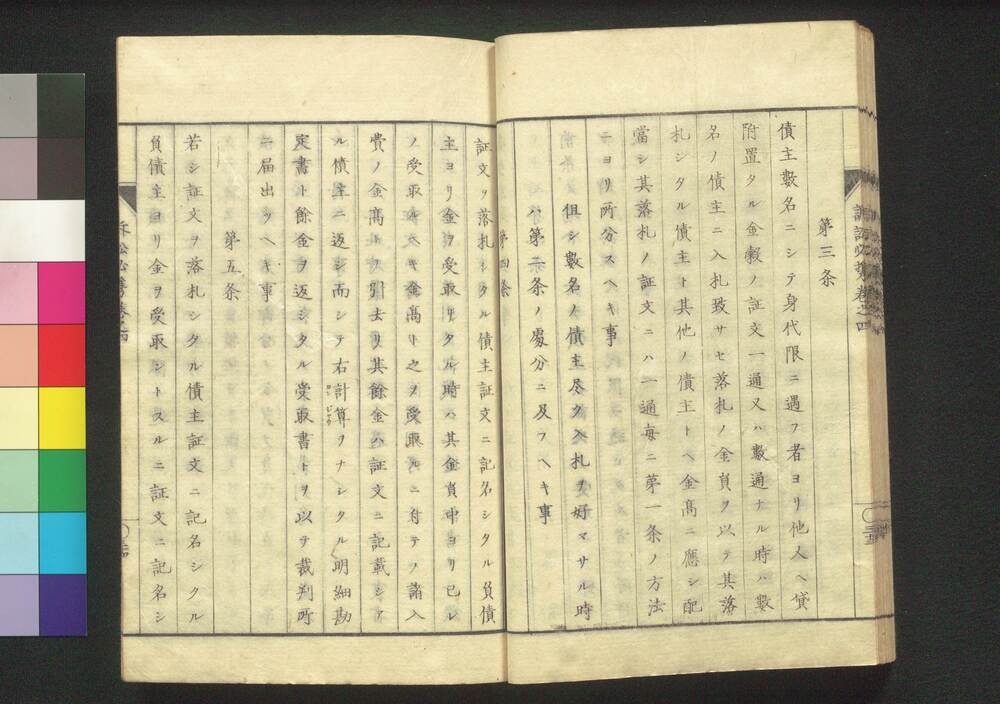 第三条
債主數名ニシテ身代限ニ遇フ者ヨリ他人ヘ貸
附置タル金穀ノ証文一通又ハ數通ナル時ハ數
名ノ債主ニ入札致サセ落札ノ金員ヲ以テ其落
札シタル債主ト其他ノ債主トヘ金高ニ應シ配
當シ其落札ノ証文ニハ一通每ニ第一条ノ方法
ニヨリ所分スヘキ事
但シ數名ノ債主尽ク入札ヲ好マサル時
ハ第二条ノ處分ニ及フヘキ事
第四条
証文ヲ落札シタル債主証文ニ記名シタル負債
主ヨリ金ヲ受取リタル時ハ其金員中ヨリ已レ
ノ受取ルヘキ金高ト之ヲ受取ルニ付テノ諸入
費ノ金高トヲ引去リ其餘金ハ証文ニ記載シア
ル債主ニ返シ而シテ右計算ヲナシタル明細勘
定書ト餘金ヲ返シタル受取書トヲ以テ裁判所
ニ届出ツヘキ事
第五条
若シ証文ヲ落札シタル債主証文ニ記名シタル
負債主ヨリ金ヲ受取ントスルニ証文ニ記名シ
訴訟必携 巻之四